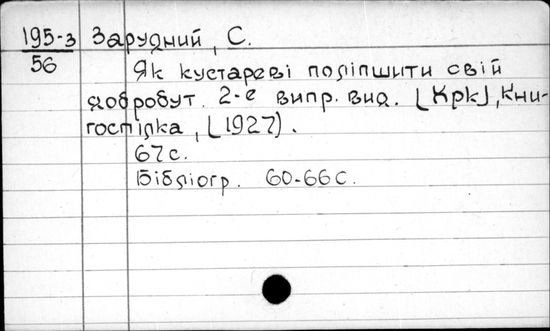 195-з Зарудний, С.
56
Як кустареві поліпшити свій
добробут. 2-е випр. вид. [Хрк], Кни-
госпілка, [1927].
67 с.
Бібліогр. 60-66 с.